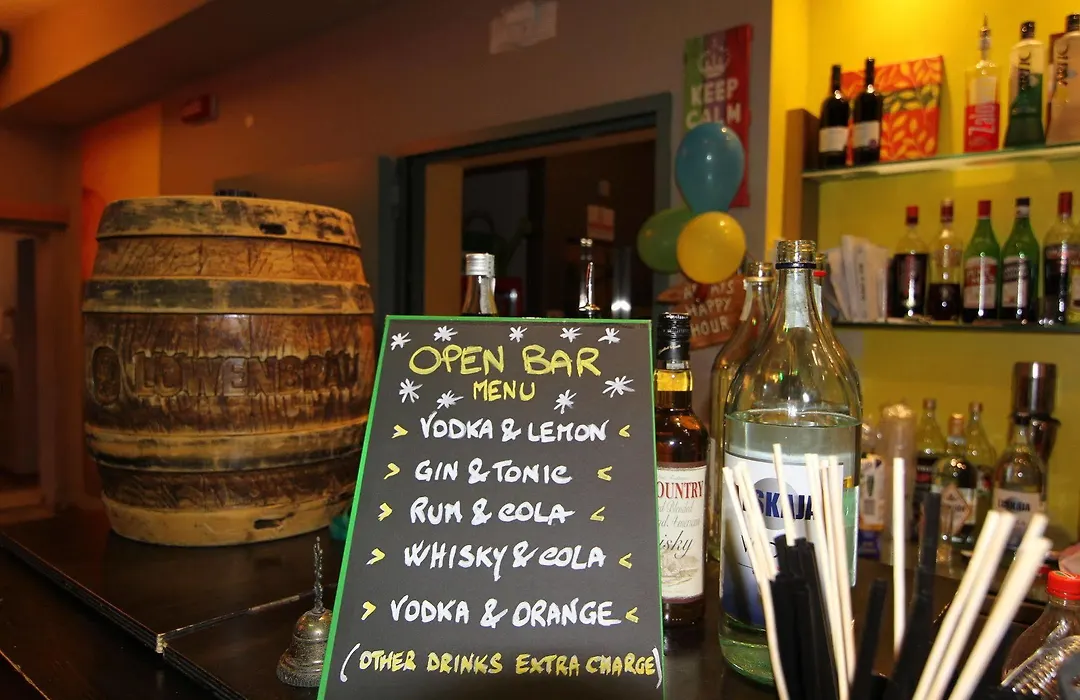 KEEP
CALM
Zalu
ARTIC
LÖWENBRÄU
HAPPY
HOUR
OPEN BAR
MENU
> VODKA & LEMON <
> GIN & TONIC <
> RUM & COLA <
> WHISKY & COLA <
> VODKA & ORANGE <
(OTHER DRINKS EXTRA CHARGE)
COUNTRY